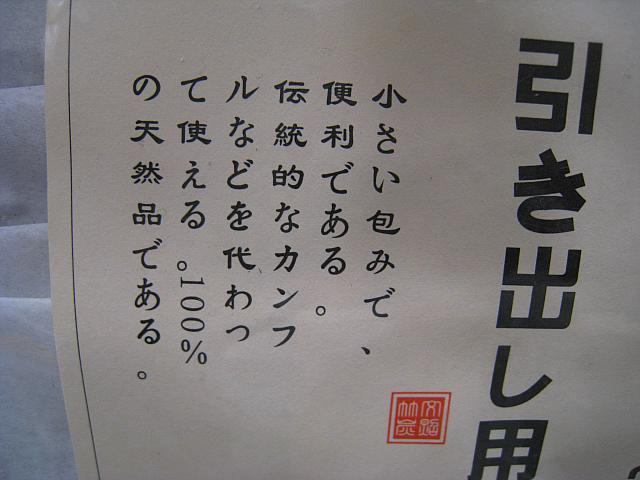 引き出し用
小さい包みで、
便利である。
伝統的なカンフ
ルなどを代わっ
て使える。100%
の天然品である。